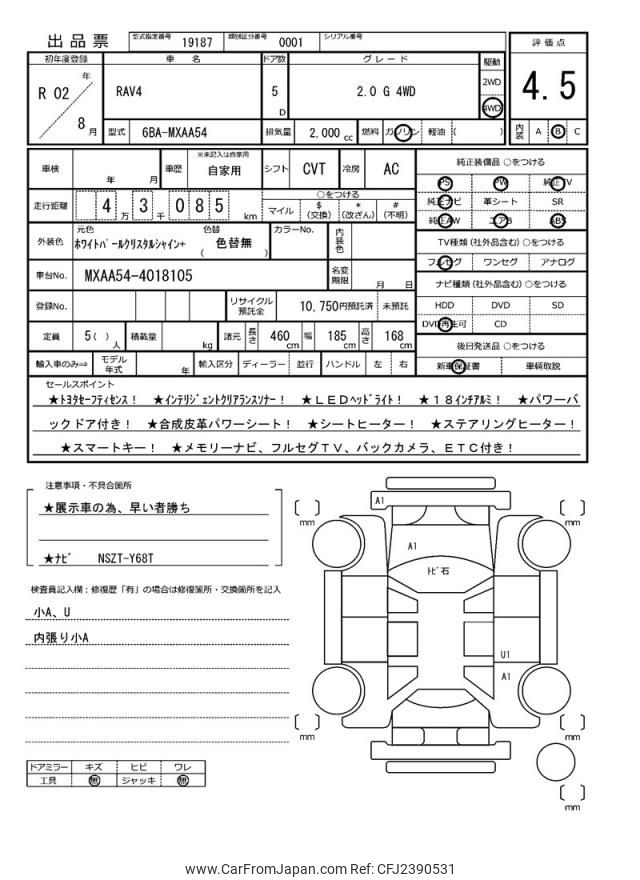 出品票 型式指定番号 19187 類別区分番号 0001 シリアル番号
評価点
初年度登録 車名 ドア数 グレード 駆動
R 02 年 8 月 RAV4 5 D 2.0 G 4WD 2WD 4WD
4.5
型式 6BA-MXAA54 排気量 2,000 cc 燃料 ガソリン 軽油 ( )
内装 A B C
車検 年 月 車歴 ※未記入は自家用 自家用 シフト CVT 冷房 AC
走行距離 4 万 3 千 085 km
○をつける
マイル $ (交換) * (改ざん) # (不明)
外装色 元色 ホワイトパールクリスタルシャイン+ 色替 ( 色替無 ) カラーNo. 内装色
車台No. MXAA54-4018105 名変期限 月 日
登録No. リサイクル預託金 10,750円預託済 未預託
定員 5( ) 人 積載量 kg 諸元 長さ 460 cm 幅 185 cm 高さ 168 cm
輸入車のみ⇒ モデル年式 年 輸入区分 ディーラー 並行 ハンドル 左 右
純正装備品 ○をつける
PS PW 純正TV
純正ナビ 革シート SR
純正AW エアB ABS
TV種類 (社外品含む) ○をつける
フルセグ ワンセグ アナログ
ナビ種類 (社外品含む) ○をつける
HDD DVD SD
DVD再生可 CD
後日発送品 ○をつける
新車保証書 車輌取説
セールスポイント
★トヨタセーフティセンス! ★インテリジェントクリアランスソナー! ★LEDヘッドライト! ★18インチアルミ! ★パワーバ
ックドア付き! ★合成皮革パワーシート! ★シートヒーター! ★ステアリングヒーター!
★スマートキー! ★メモリーナビ、フルセグTV、バックカメラ、ETC付き!
注意事項・不具合箇所
★展示車の為、早い者勝ち
★ナビ NSZT-Y68T
検査員記入欄:修復歴「有」の場合は修復箇所・交換箇所を記入
小A、U
内張り小A
ドアミラー キズ ヒビ ワレ
工具 無 ジャッキ 無
A1
mm mm
A1
トビ石
U1
A1
mm mm
mm
www.CarFromJapan.com Ref: CFJ2390531